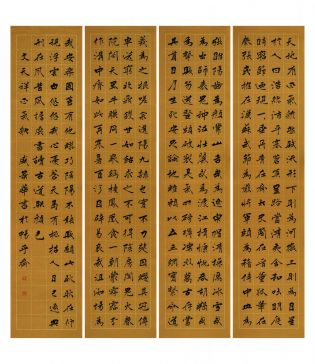 天地有正氣雜然賦流形下則為河嶽上則為日星
於人曰浩然沛乎塞蒼冥皇路當清夷含和吐明庭
時窮節乃見一一垂丹青在齊太史簡在晉董狐筆在
秦張良椎在漢蘇武節為嚴將軍頭為嵇侍中血為張
睢陽齒為顏常山舌或為遼東帽清操厲冰雪或
為出師表鬼神泣壯烈或為渡江楫慷慨吞胡羯或
為擊賊笏逆豎頭破裂是氣所磅礴凜烈萬古存當
其貫日月生死安足論地維賴以立三綱實繫命道
義為之根嗟予遘陽九隸也實不力楚囚纓其冠傳
車送窮北鼎鑊甘如飴求之不可得陰房闃鬼火春
院閟天黑牛驥同一皂雞棲鳳凰食一朝蒙霧露分
作溝中瘠如此再寒暑百沴自辟易哀哉沮洳場為
我安樂國豈有他繆巧陰陽不能賊顧此耿耿在仰
視浮雲白悠悠我心悲蒼天曷有極哲人日已遠典
刑在夙昔風簷展書讀古道照顏色
文天祥正氣歌 華書於